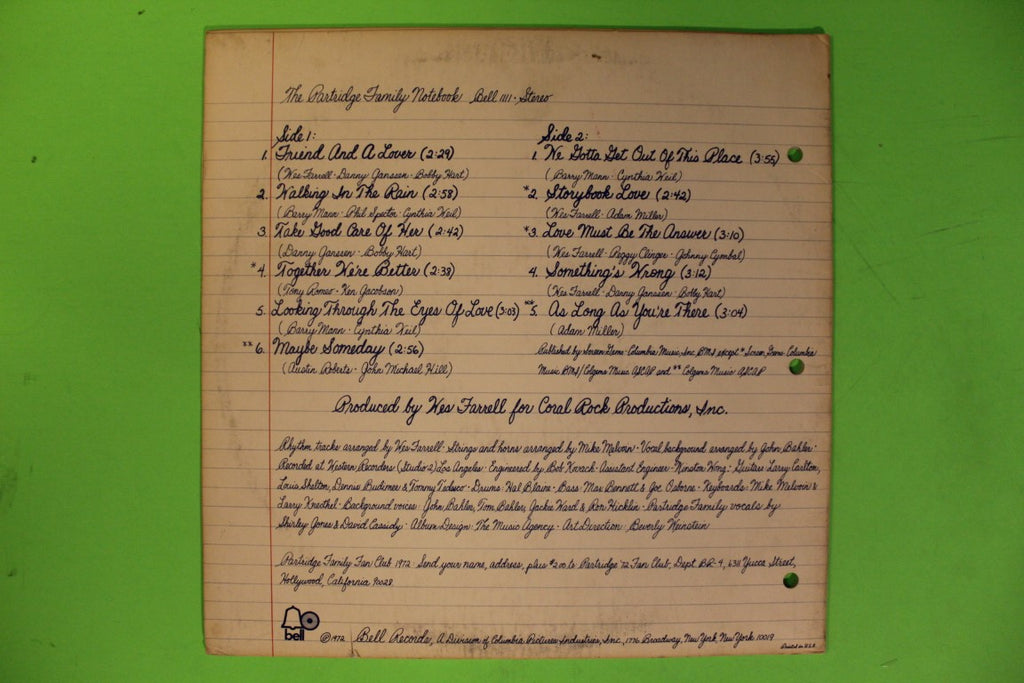 The Partridge Family Notebook Bell 1111 · Stereo
Side 1:
1. Friend And A Lover (2:29)
(Wes Farrell · Danny Janssen · Bobby Hart)
2. Walking In The Rain (2:58)
(Barry Mann · Phil Spector · Cynthia Weil)
3. Take Good Care Of Her (2:42)
(Danny Janssen · Bobby Hart)
*4. Together We're Better (2:39)
(Tony Romeo · Ken Jacobson)
5. Looking Through The Eyes Of Love (3:03)
(Barry Mann · Cynthia Weil)
**6. Maybe Someday (2:56)
(Austin Roberts · John Michael Hill)
Side 2:
1. We Gotta Get Out Of This Place (3:55)
(Barry Mann · Cynthia Weil)
*2. Storybook Love (2:42)
(Wes Farrell · Adam Miller)
*3. Love Must Be The Answer (3:10)
(Wes Farrell · Peggy Clinger · Johnny Cymbal)
4. Something's Wrong (3:12)
(Wes Farrell · Danny Janssen · Bobby Hart)
**5. As Long As You're There (3:04)
(Adam Miller)
Published by Screen Gems-Columbia Music, Inc. BMI except * Screen Gems-Columbia
Music BMI/Colgems Music ASCAP and ** Colgems Music ASCAP
Produced by Wes Farrell for Coral Rock Productions, Inc.
Rhythm tracks arranged by Wes Farrell · Strings and horns arranged by Mike Melvoin · Vocal background arranged by John Bahler ·
Recorded at Western Recorders (Studio 2) Los Angeles · Engineered by Bob Kovach · Assistant Engineer · Winston Wong · Guitars: Larry Carlton,
Louis Shelton, Dennis Budimer & Tommy Tedesco · Drums: Hal Blaine · Bass: Max Bennett & Joe Osborne · Keyboards: Mike Melvoin &
Larry Knechtel · Background voices: John Bahler, Tom Bahler, Jackie Ward & Ron Hicklin · Partridge Family vocals by
Shirley Jones & David Cassidy · Album Design: The Music Agency · Art Direction: Beverly Weinstein
Partridge Family Fan Club 1972 · Send your name, address, plus $2.00 to Partridge '72 Fan Club, Dept. BR-4, 6311 Yucca Street,
Hollywood, California 90028
bell
℗1972 Bell Records, A Division of Columbia Pictures Industries, Inc., 1776 Broadway, New York, New York 10019
Printed in U.S.A.